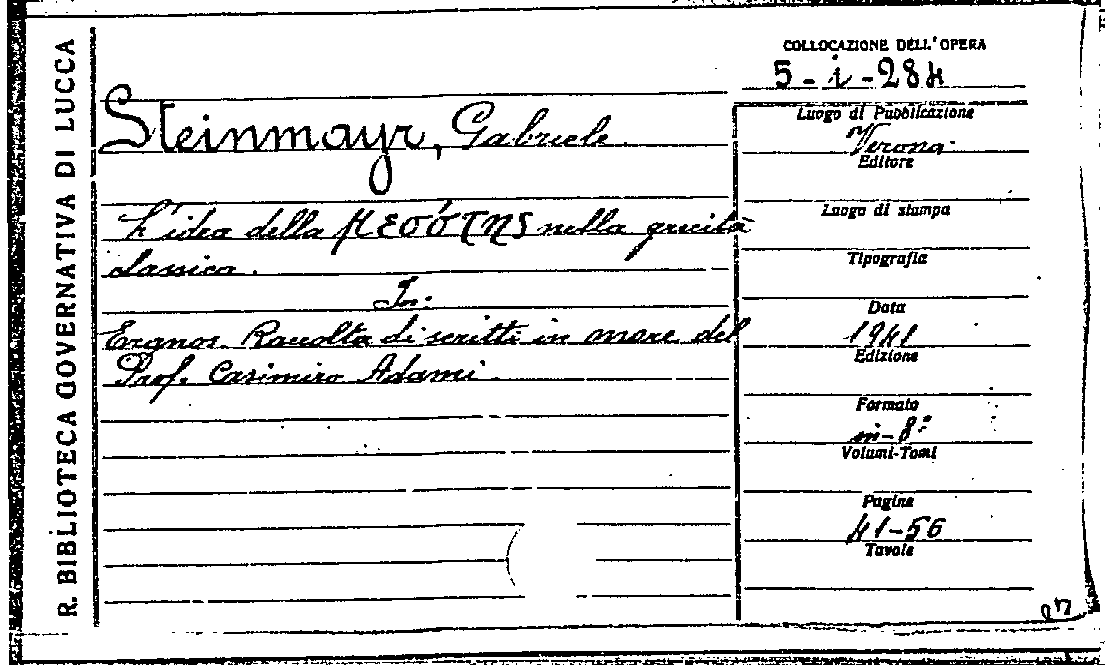 R. BIBLIOTECA GOVERNATIVA DI LUCCA
COLLOCAZIONE DELL'OPERA
5-i-284
Steinmayr, Gabriele.
L'idea della μεσότης nella grecità
classica.
In:
Ergnos. Raccolta di scritti in onore del
Prof. Casimiro Adami.
Luogo di Pubblicazione
Verona
Editore
Luogo di stampa
Tipografia
Data
1941
Edizione
Formato
in-8°
Volumi-Tomi
Pagine
41-56
Tavole